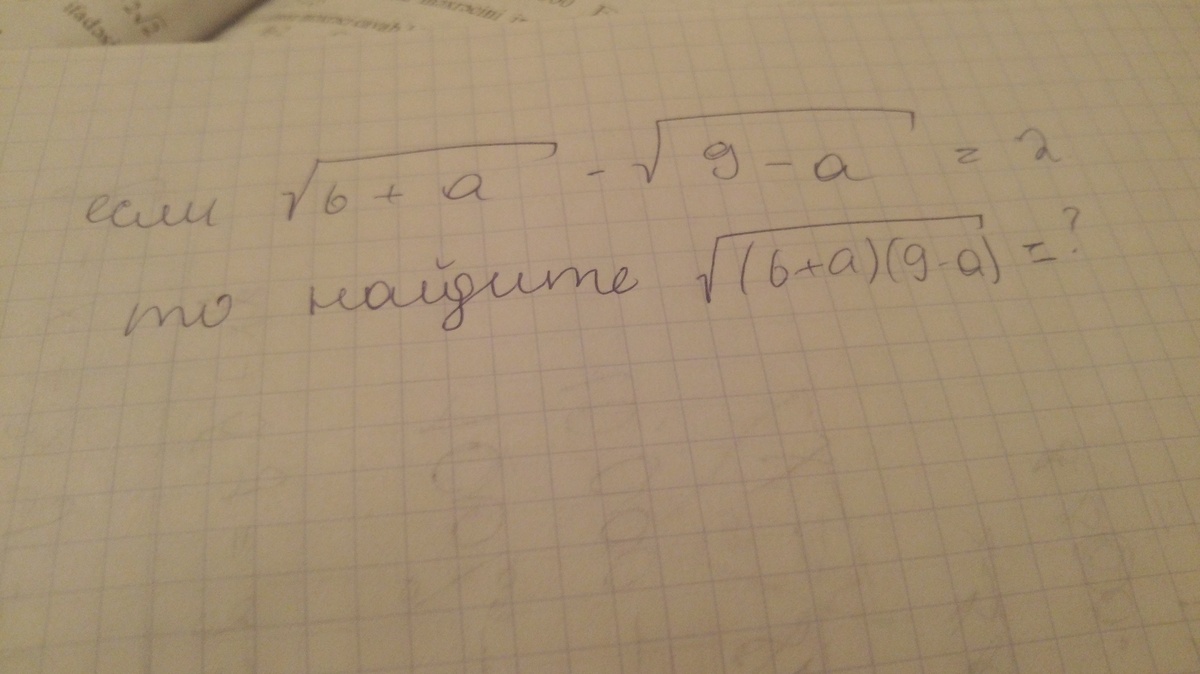 2√2
если √(6 + a) - √(9 - a) = 2
то найдите √((6+a)(9-a)) = ?